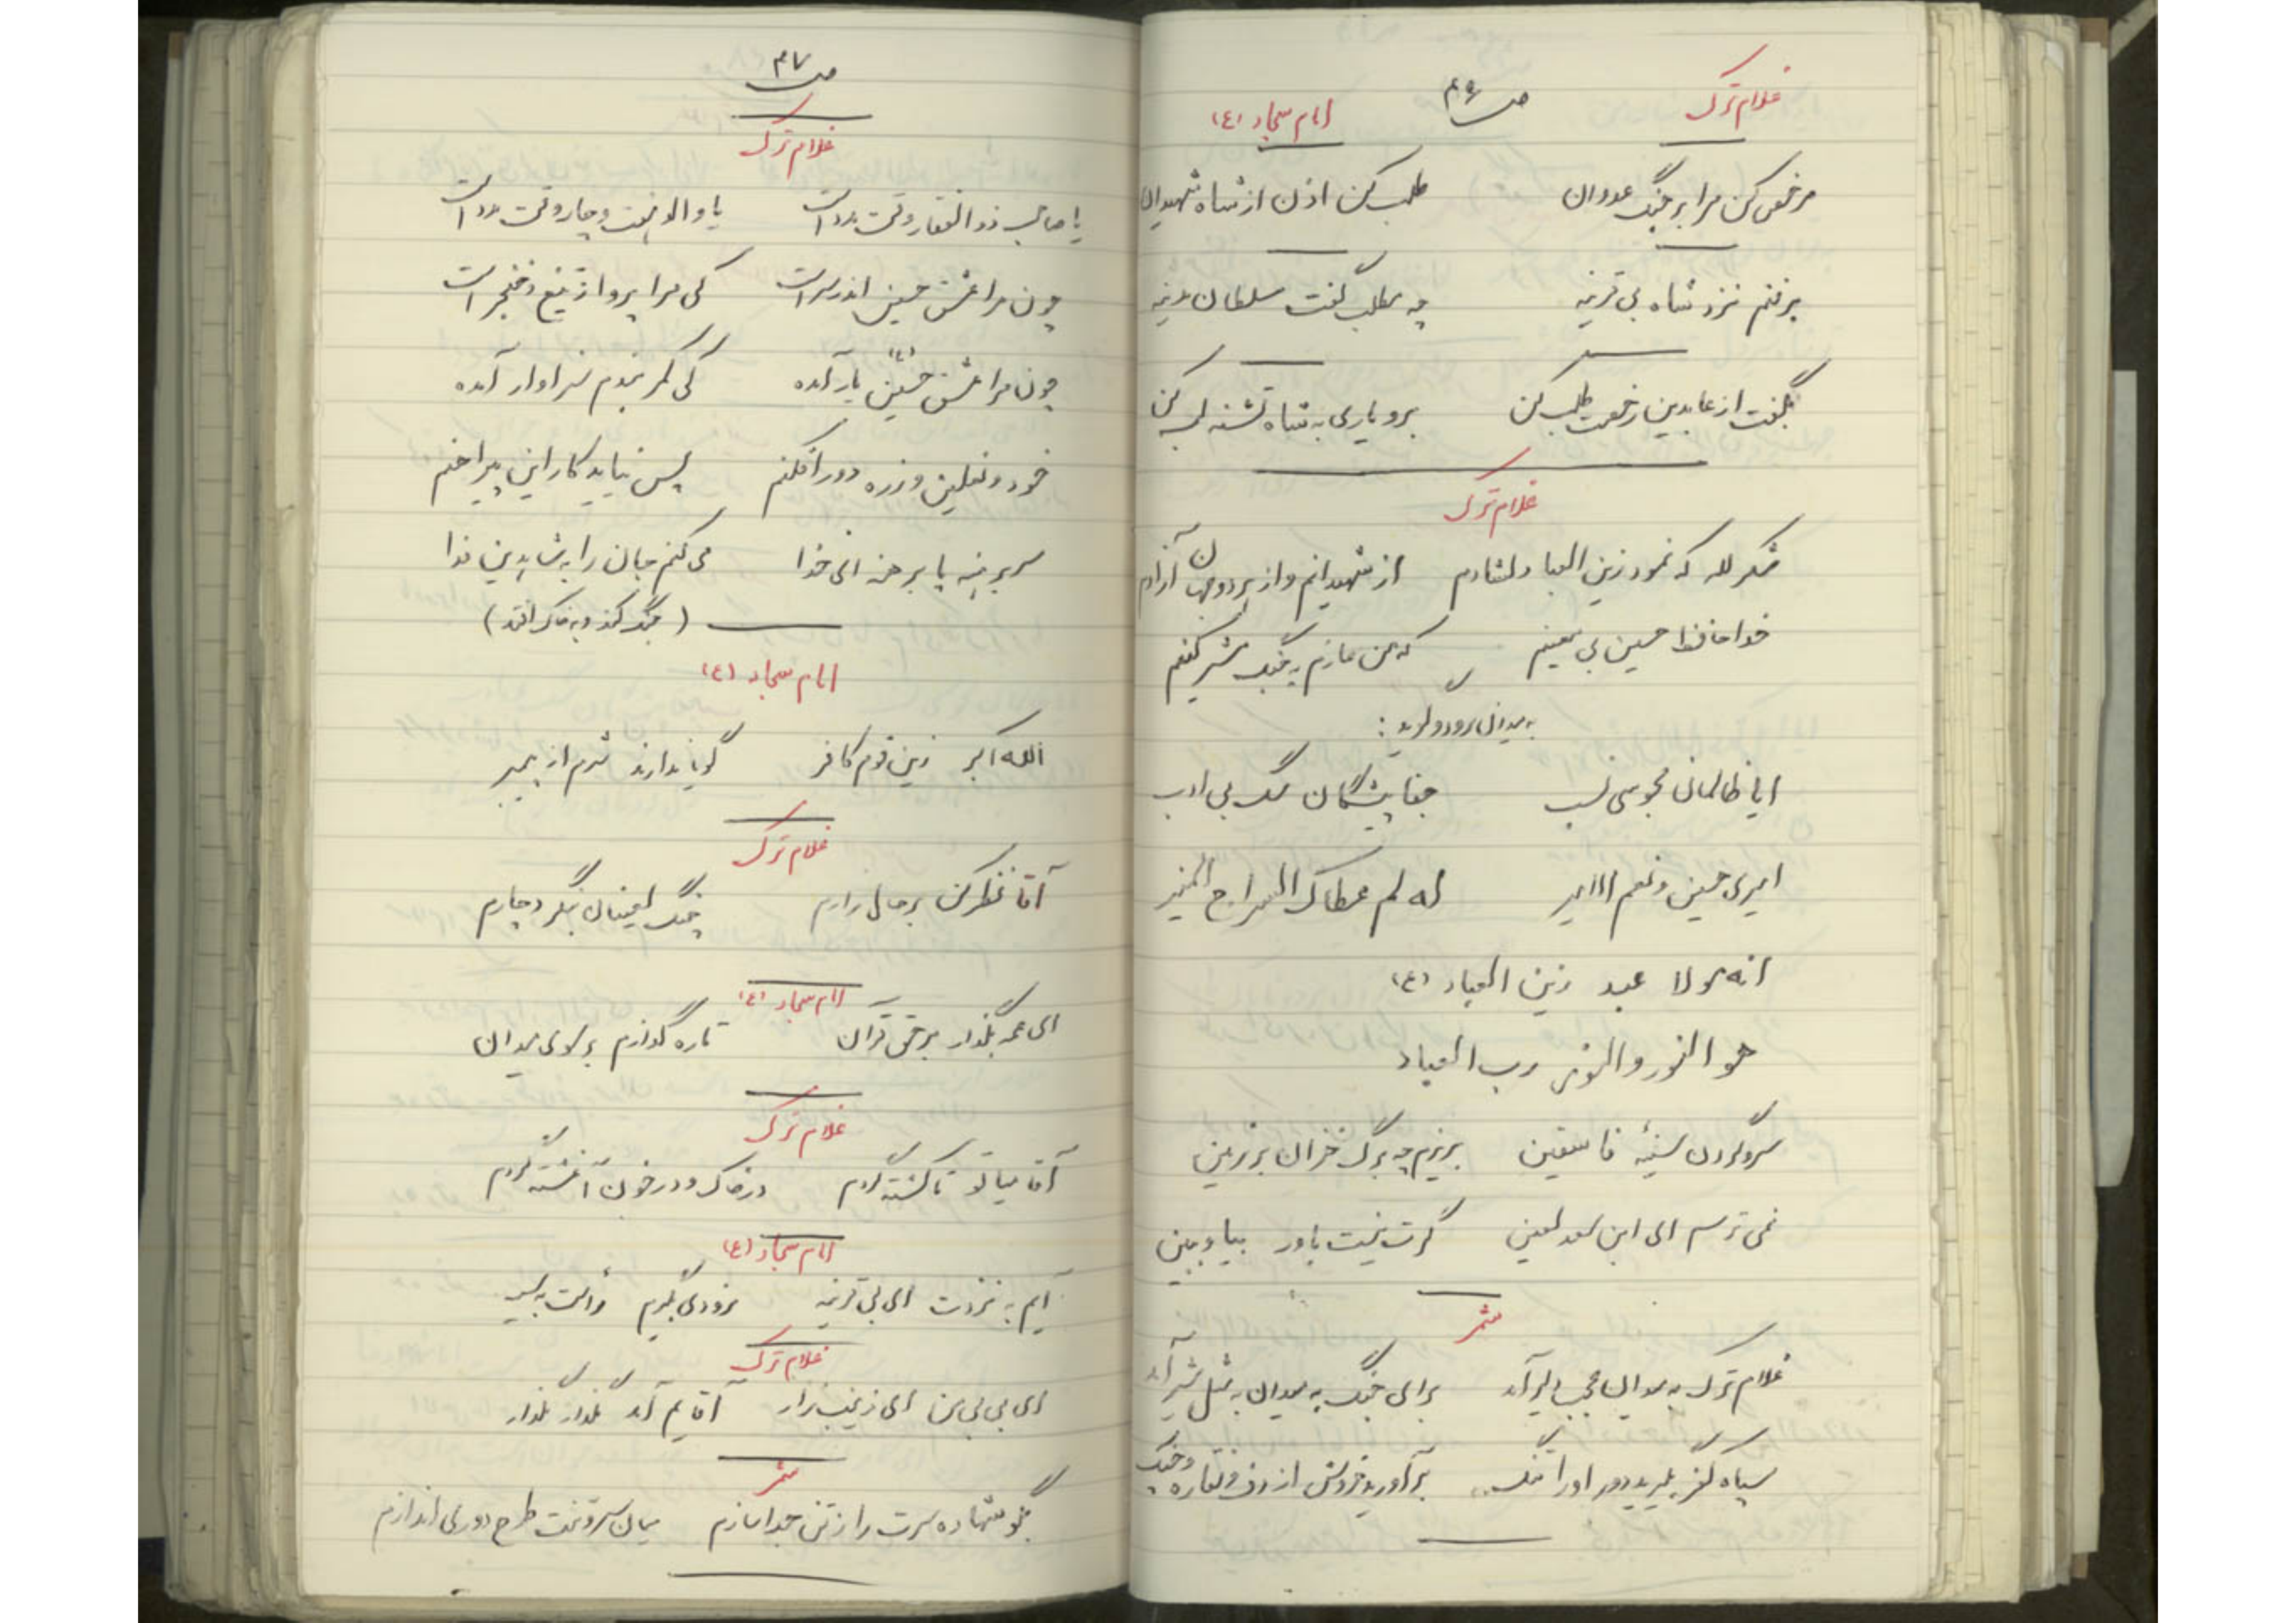 غلام ترک
ص ۴۶
امام سجاد (ع)
مرخص کن مرا بر جنگ عدوان طلب کن اذن از شاه شهیدان
برفتم نزد شاه بی قرینه چه مطلب گفت سلطان مدینه
بگفت از عابدین رخصت طلب کن برو یاری به شاه تشنه لب کن
غلام ترک
شکر لله که نمود زین العباد دلشادم از شهیدانم و از بردو جهان آزادم
خدا حافظ حسین بی معینم که من عازم به جنگ مشرکینم
به میدان رود و گوید :
ای ظالمان مجوسی نسب جفا پیشگان سگ بی ادب
امیری حسین و نعم الامیر له لم عطاک السراج المنیر
انه مولا عبد زین العباد (ع)
هو النور والنور رب العباد
سر و گردن سینهٔ فاسقین بریزم چه برگ خزان بر زمین
نمی ترسم ای ابن سعد لعین گرت نیست باور بیا و ببین
شمر
غلام ترک به میدان عجب دلیر آمد برای جنگ به میدان به مثل شیر آمد
سپاه کفر بگیرید دور او را تنگ برآورید خروش از دف و نقاره و چنگ
ص ۴۷
غلام ترک
یا صاحب ذوالفقار وقت مدد است یا والی هشت و چار وقت مدد است
چون مرا عشق حسین اندر سر است کی مرا پروا ز تیغ و خنجر است
چون مرا عشق حسین (ع) یار آمده کی کمر بندم سزاوار آمده
خود و نعلین و زره دور افکنم پس نیاید کار این پیراهنم
سر برهنه پا برهنه ای خدا می کنم جان را به شاه دین فدا
( جنگ کند و به خاک افتد )
امام سجاد (ع)
الله اکبر زین قوم کافر گویا ندارند شرم از پیمبر
غلام ترک
آقا نظر کن بر حال زارم چنگ لعینان بنگر دچارم
امام سجاد (ع)
ای عمه بگذار بر حق قرآن تا ره گذارم بر سوی میدان
غلام ترک
آقا میا تو تا کشته گردم در خاک و در خون آغشته گردم
امام سجاد (ع)
آیم به نزدت ای بی قرینه بزودی گیرم
غلام ترک
ای بی بی من ای زینب زار آقایم آمد نگذار نگذار
شمر
بگو شهاده سرت را ز تن جدا سازم میان سر و تنت طرح دوری اندازم